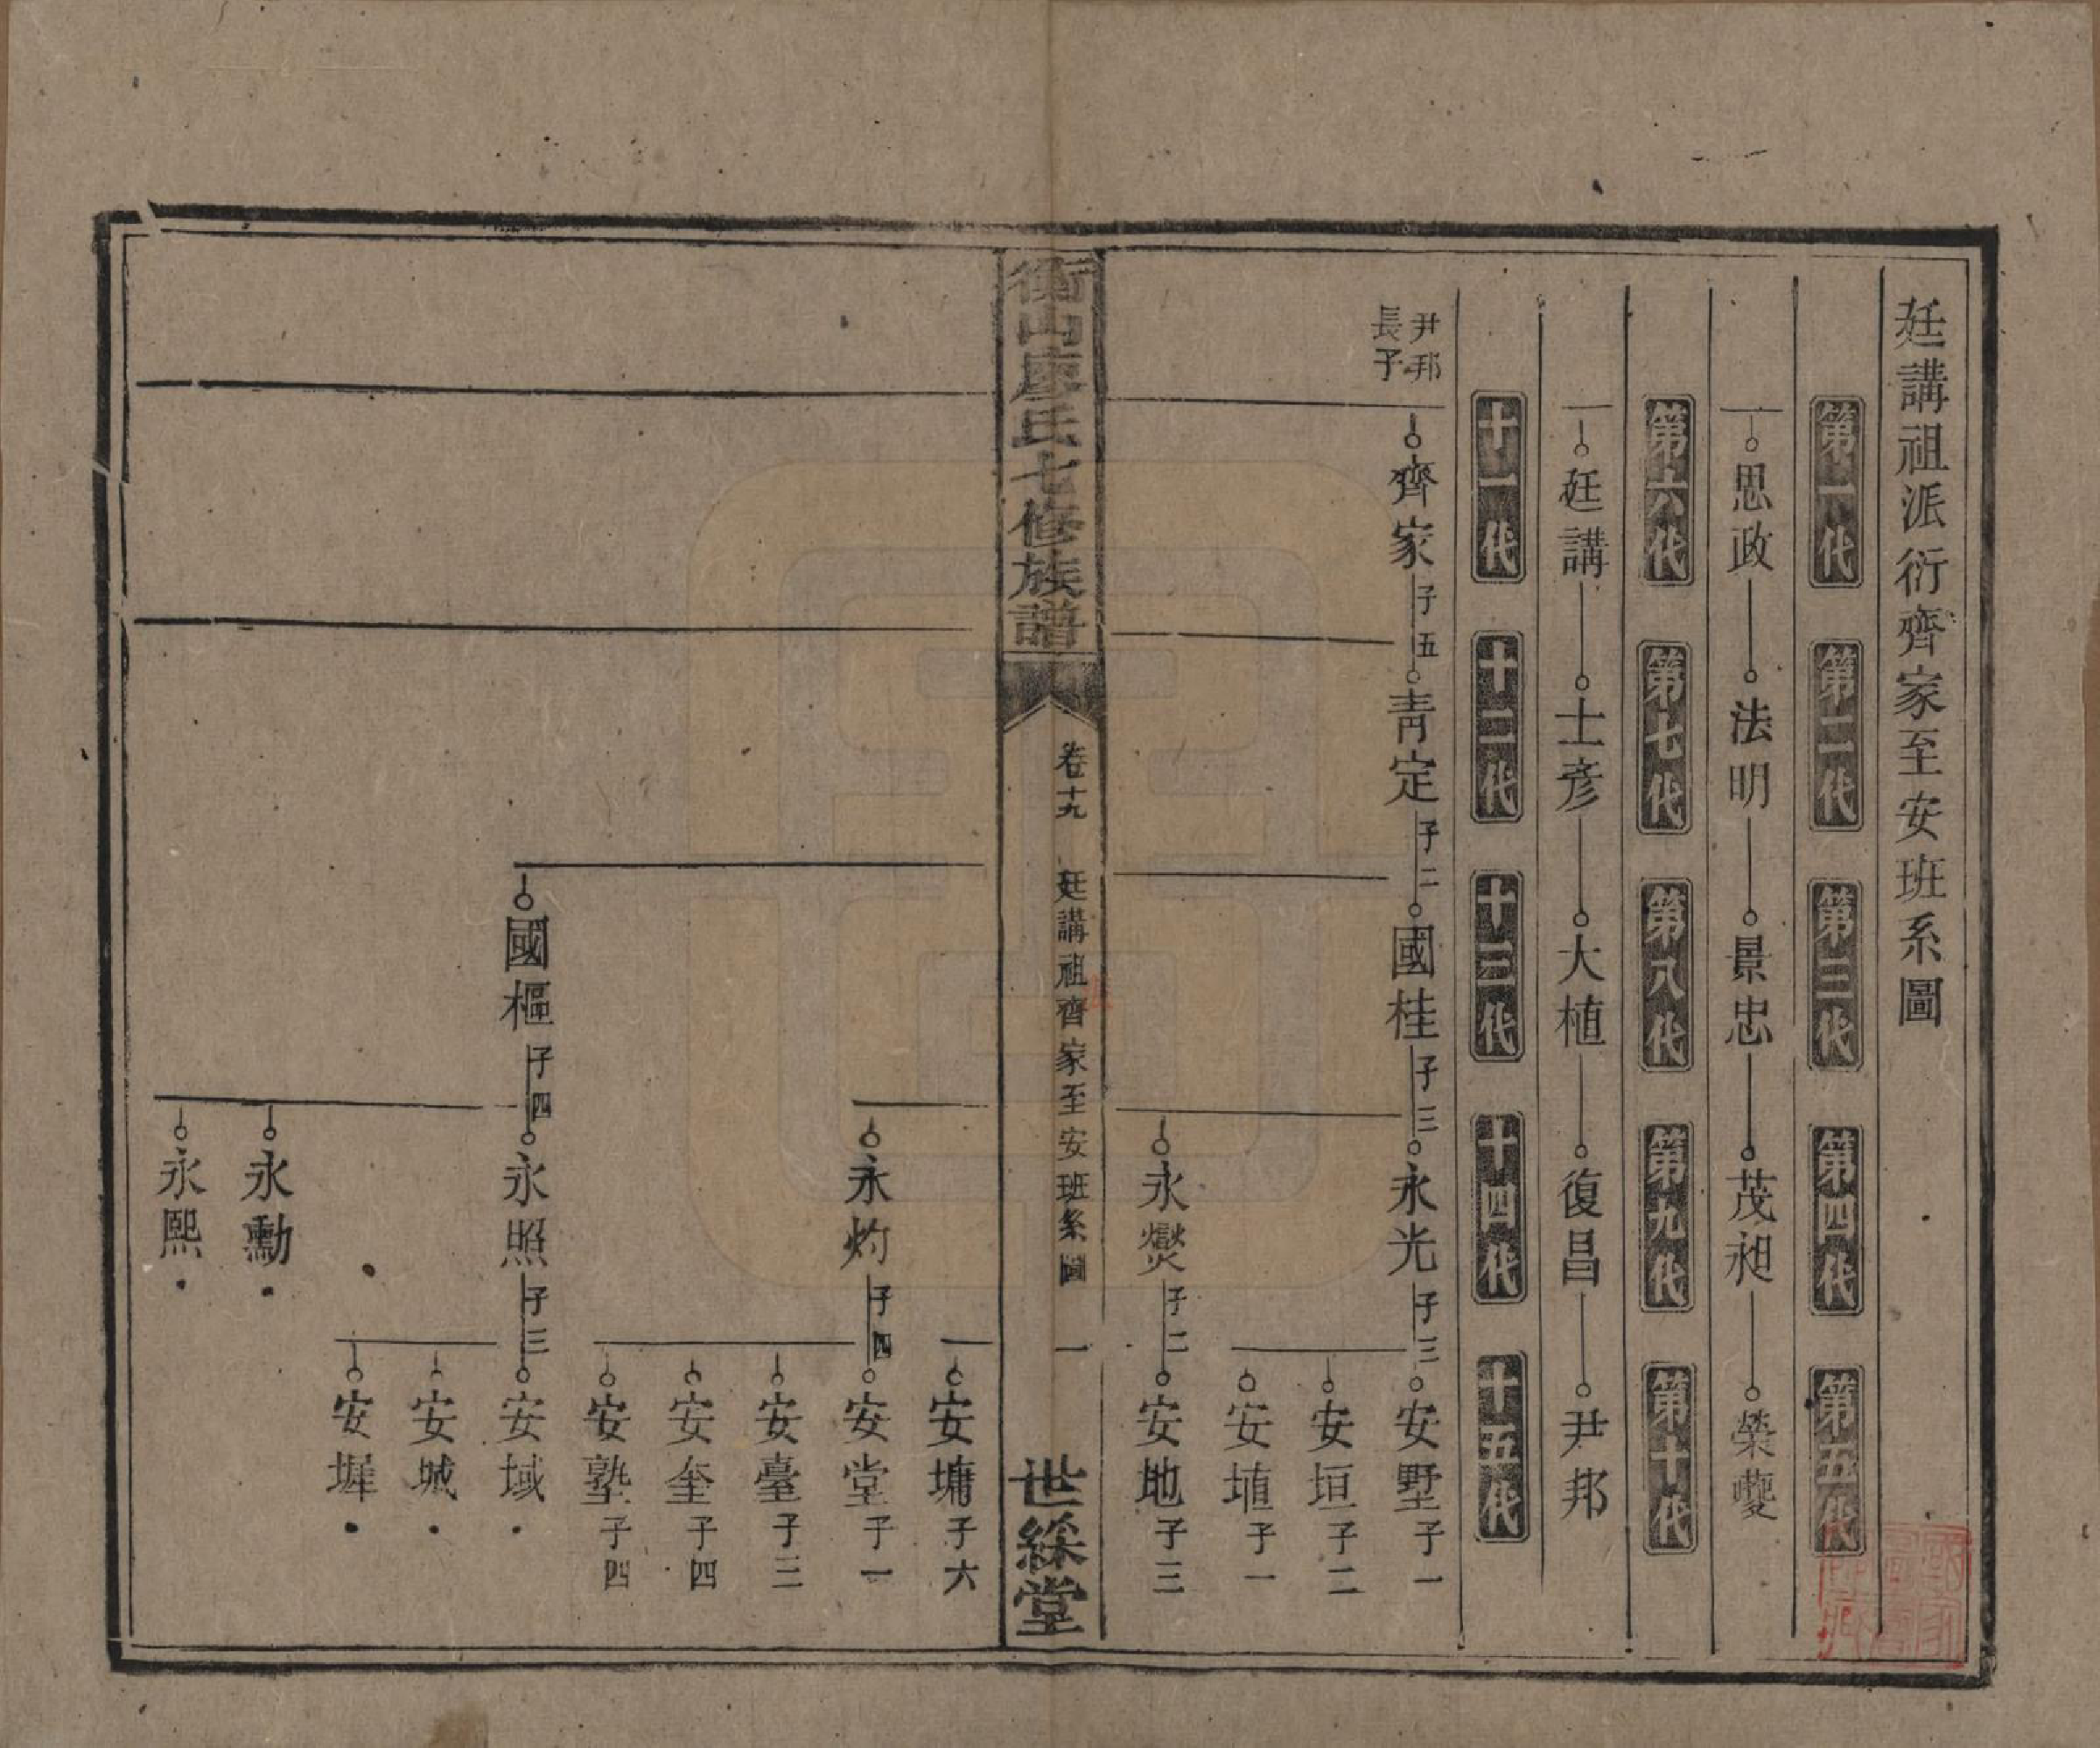 廷講祖派衍齊家至安班系圖
第一代 第二代 第三代 第四代 第五代
思政 法明 景忠 茂昶 榮夔
第六代 第七代 第八代 第九代 第十代
廷講 士彥 大植 復昌 尹邦
十一代 十二代 十三代 十四代 十五代
尹邦
長子
齊家 子五 靑定 子二 國桂 子三 永光 子三 安墅 子一
安垣 子二
安埴 子一
永燮 子二 安地 子三
衡山廖氏七修族譜 卷十九 廷講祖齊家至安班系圖 一 世綵堂
安墉 子六
永灼 子四 安堂 子一
安臺 子三
安奎 子四
安塾 子四
國樞 子四 永照 子三 安域
安城
安墀
永勳
永熙